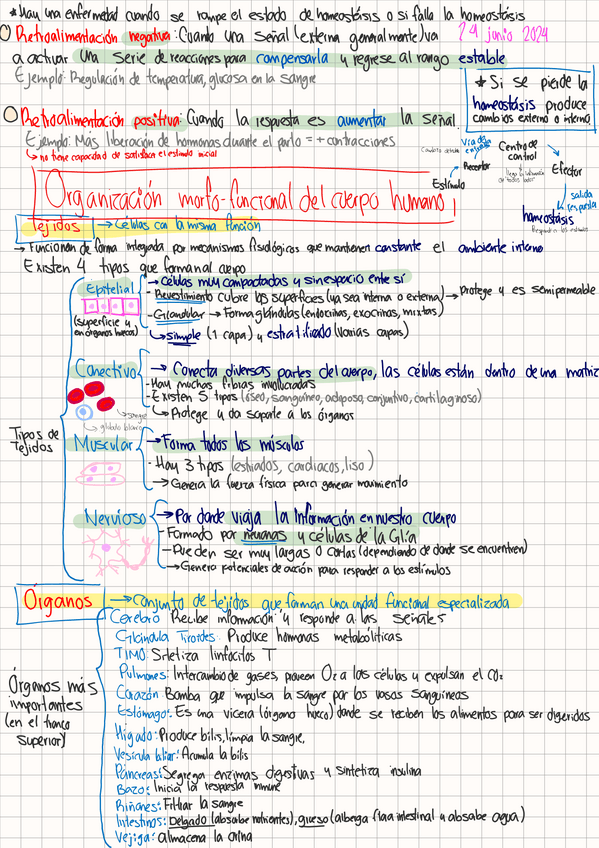 * Hay una enfermedad cuando se rompe el estado de homeostásis o si falla la homeostásis
Retroalimentación negativa: Cuando una señal (externa generalmente) va
24 junio 2024
a activar una serie de reacciones para compensarla y regrese al rango estable
Ejemplo: Regulación de temperatura, glucosa en la sangre
* Si se pierde la
homeostásis produce
cambios externo o interno
Retroalimentación positiva: Cuando la respuesta es aumentar la señal.
Ejemplo: Más liberación de hormonas durante el parto = + contracciones
↳ no tiene capacidad de satisfacer el estímulo inicial
Estímulo
Receptor
Vía de
Centro de
control
Efector
salida
homeostásis
Organización morfo-funcional del cuerpo humano
Tejidos → Células con la misma función
→ Funcionan de forma integrada por mecanismos fisiológicos que mantienen constante el ambiente interno
Existen 4 tipos que forman al cuerpo
Tipos de
tejidos
Epitelial
(superficie y
en órganos huecos)
→ Células muy compactadas y sin espacio ente sí
- Revestimiento cubre las superficies (ya sea interna o externa) → Protege y es semipermeable
- Glandular → Forma glándulas (endocrinas, exocrinas, mixtas)
↳ simple (1 capa) y estratificado (varias capas)
Conectivo
→ sangre
→ glóbulo blanco
→ Conecta diversas partes del cuerpo, las células están dentro de una matriz
- Hay muchas fibras involucradas
- Existen 5 tipos (óseo, sanguíneo, adiposo, conjuntivo, cartilaginoso)
↳ Protege y da soporte a los órganos
Muscular
→ Forma todos los músculos
- Hay 3 tipos (estriados, cardiacos, liso)
→ Genera la fuerza física para generar movimiento
Nervioso
→ Por donde viaja la información en nuestro cuerpo
- Formado por neuronas y células de la Glía
- Pueden ser muy largas o cortas (dependiendo de donde se encuentren)
→ Genera potenciales de acción para responder a los estímulos
Órganos → Conjunto de tejidos que forman una unidad funcional especializada
Órganos más
importantes
(en el tronco
superior)
Cerebro: Recibe información y responde a las señales
Glándula Tiroides: Produce hormonas metabolíticas
TIMO: Sintetiza linfocitos T
Pulmones: Intercambio de gases, proveen O₂ a las células y expulsan el CO₂
Corazón: Bomba que impulsa la sangre por los vasos sanguíneos
Estómago: Es una vícera (órgano hueco) donde se reciben los alimentos para ser digeridos
Hígado: Produce bilis, limpia la sangre,
Vesícula biliar: Acumula la bilis
Páncreas: Segrega enzimas digestivas y sintetiza insulina
Bazo: Inicia la respuesta inmune
Riñones: Filtrar la sangre
Intestinos: Delgado (absorbe nutrientes), grueso (alberga flora intestinal y absorbe agua)
Vejiga: almacena la orina